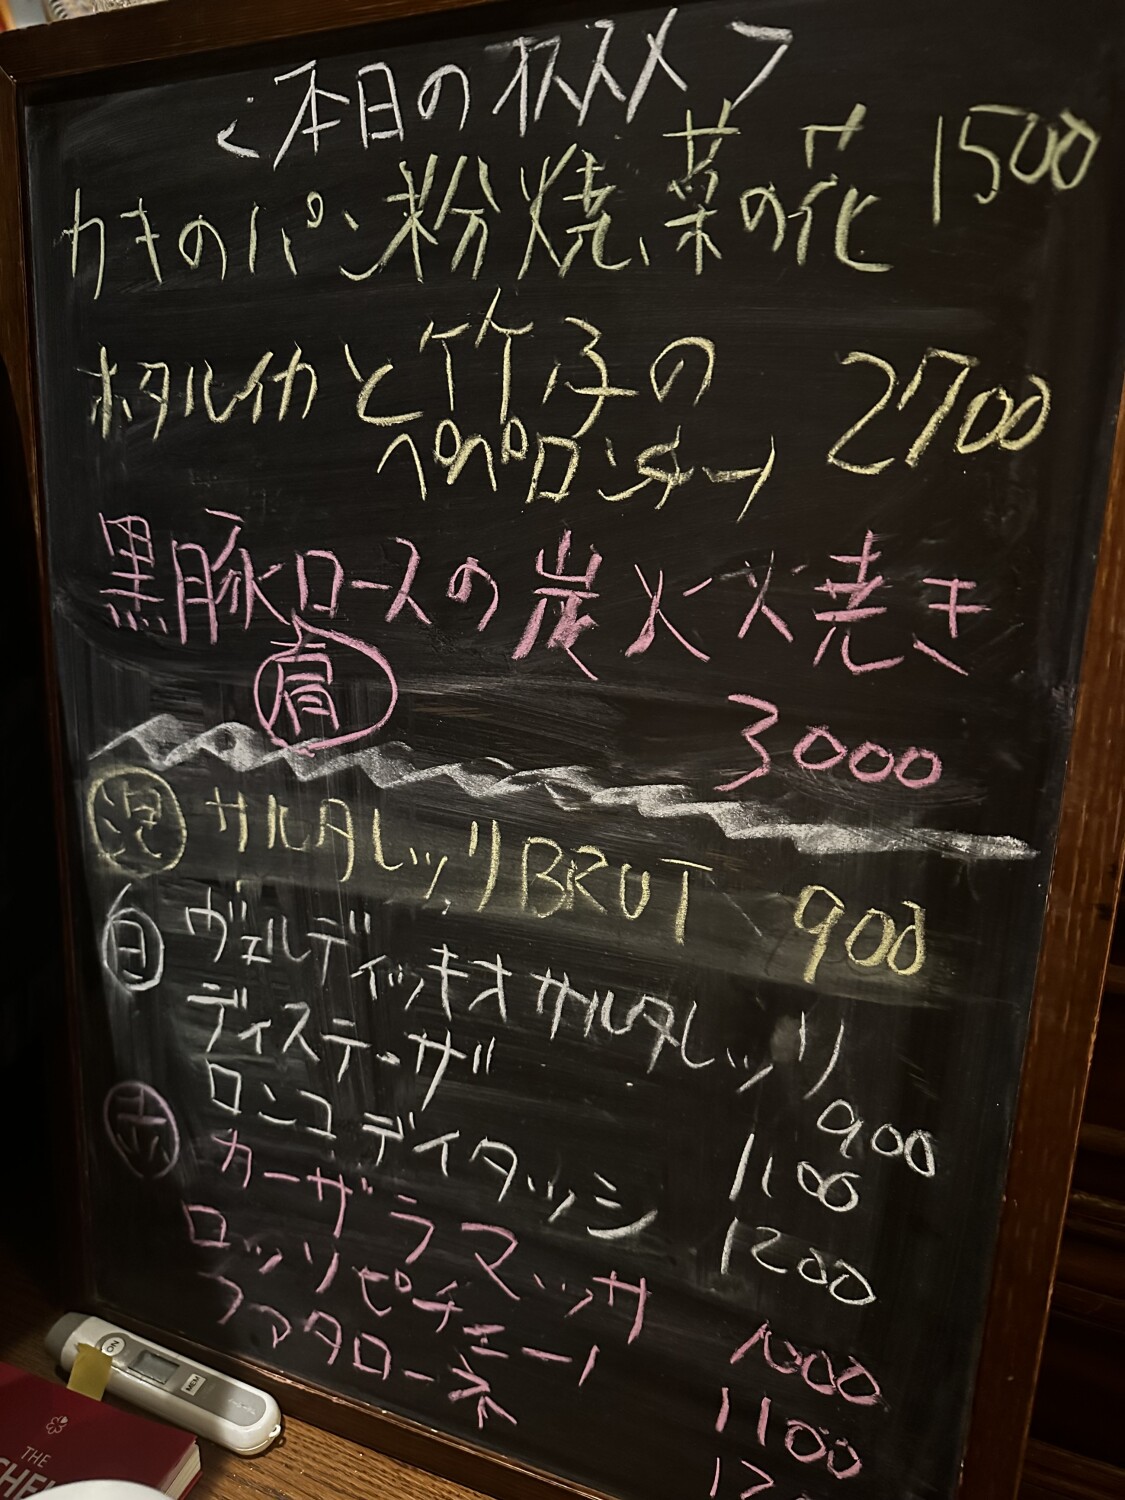 本日のオススメ
カキのパン粉焼、菜の花 1500
ホタルイカと竹子の
ペペロンチーノ 2700
黒豚ロースの炭火火焼き
肩
3000
泡 サルタレッリBRUT 900
白 ヴェルディッキオサルタレッリ 900
ディステーザ 1100
ロンコ ディタッシ 1200
赤 カーザラマッサ 1000
ロッソピチェーノ 1100
ファタローネ
ON
MEM
THE